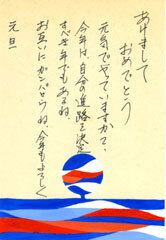 あけまして
おめでとう
元気でやってますか？
今年は、自分の進路を決定
すべき年でもあるね
お互いにガンバロうね 今年もよろしく
元旦